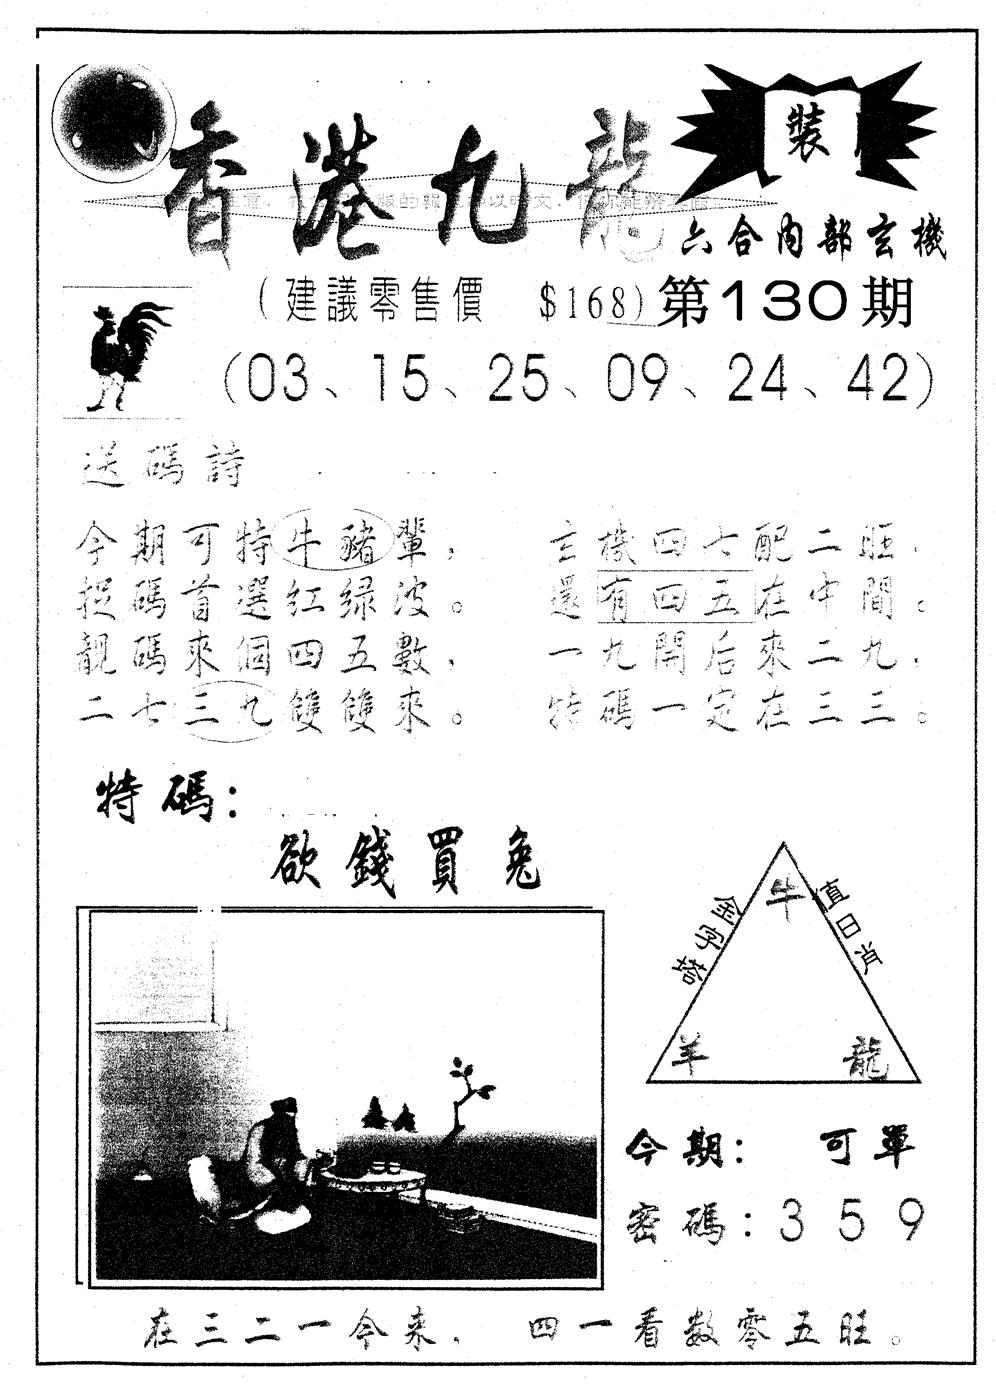 裝
香港九龍
版的報
六合內部玄機
(建議零售價 $168)第130期
(03、15、25、09、24、42)
送碼詩
今期可特牛豬輩，
捉碼首選紅绿波。
靚碼來個四五數，
二七三九雙雙來。
玄機四七配二旺，
還有四五在中間。
一九開后來二九，
特碼一定在三三。
特碼：
欲錢買兔
金字塔
牛
值日肖
羊
龍
今期： 可單
密碼：359
在三二一今來， 四一看数零五旺。